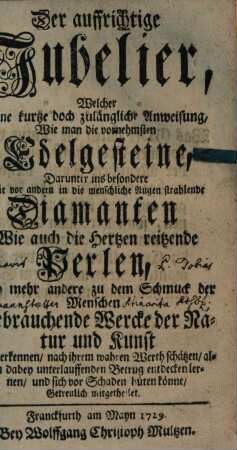 Der auffrichtige
Jubelier,
Welcher
ne kurtze doch zulängliche Anweisung,
Wie man die vornehmsten
Edelgesteine,
Darunter ins besondere
ie vor andern in die menschliche Augen strahlende
Diamanten
Wie auch die Hertzen reitzende
Perlen,
mehr andere zu dem Schmuck der
Menschen
ebrauchende Wercke der Na-
tur und Kunst
erkennen, nach ihrem wahren Werth schätzen, al-
dabey unterlauffenden Betrug entdecken ler-
nen, und sich vor Schaden hüten könne,
Getreulich mitgetheilet.
Franckfurth am Mayn 1729.
Bey Wolffgang Christoph Multzen.